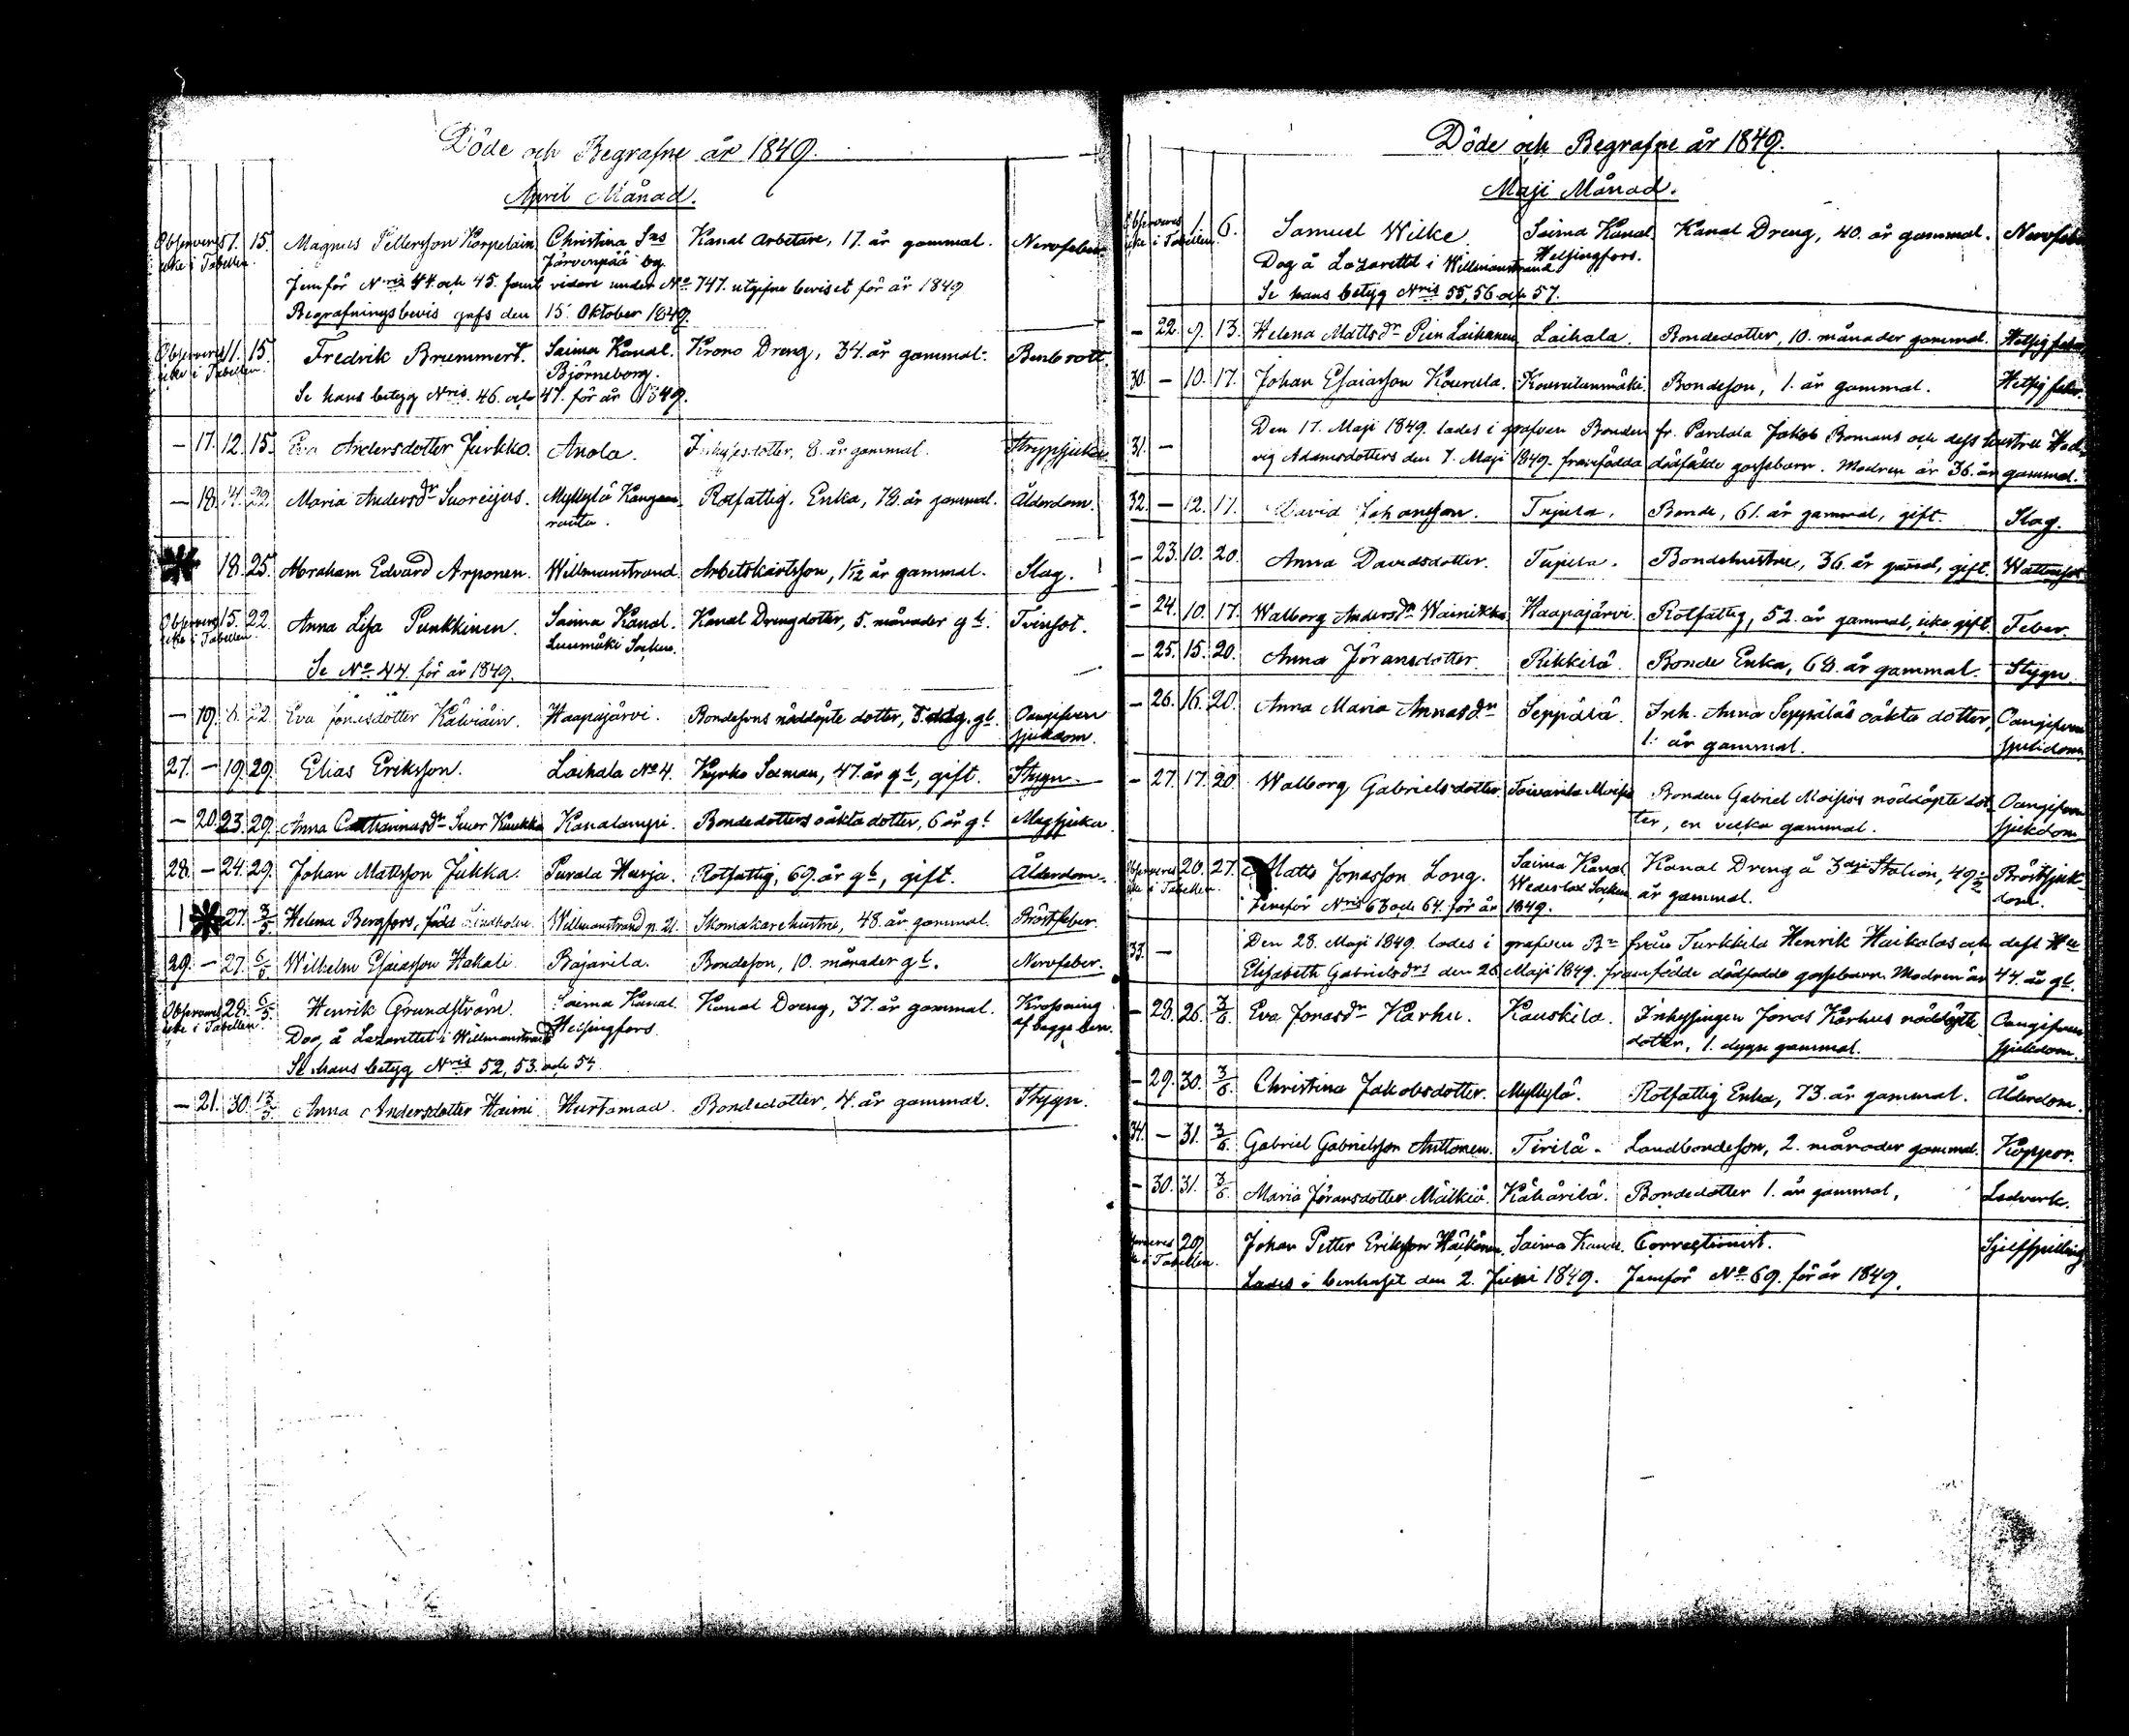 Döde och Begrafne år 1849.
April Månad.
Observeras icke i Tabellen. 7. 15. Magnus Pettersson Korpelain Christina Sns Kanal Arbetare, 17. år gammal. Nervfeber
Järvenpää by
Jemför Nris 44. och 45. samt vidare under No 747. utgifne beviset för år 1849
Begrafningsbevis gafs den 15. Oktober 1849.
Observeras icke i Tabellen. 11. 15. Fredrik Brummert. Saima Kanal. Krono Dreng, 34. år gammal. Benbrott
Björneborg.
Se hans betyg Nris. 46. och 47. för år 1849.
— 17. 12. 15. Eva Andersdotter Jurkko. Anola. Inhysesdotter, 8. år gammal. Strypsjuka
— 18. 14. 22. Maria Andersdr Suoreijus. Myllylä Kangas Rotfattig. Enka, 72. år gammal. Ålderdom.
rauta.
18. 25. Abraham Edvard Arponen. Willmanstrand. Arbetskarlsson, 1 1/12 år gammal. Slag.
Observeras icke i Tabellen. 15. 22. Anna Lisa Punkkinen. Saima Kanal. Kanal Drengdotter, 5. månader gl. Tvinsot.
Luumäki Socken.
Se No 44. för år 1849.
— 19. 22. Eva Jonasdotter Kälviäin. Haapajärvi. Bondesons nöddöpte dotter, dag. gl. Oangifven
sjukdom.
27. — 19. 29. Elias Eriksson. Laihala No 4. Kyrko Soeman, 47. år gl, gift. Stygn.
— 20. 23. 29. Anna Catharinasdr Suur Kuukka Kanalampi. Bondedotters oäkta dotter, 6 år gl Magsjuka.
28. — 24. 29. Johan Mattsson Jukka. Purala Hurja. Rotfattig, 69. år gl, gift. Ålderdom.
1 27. 3/5 Helena Bergfors, född Lindholm. Willmanstrand n. 21. Skomakarehustru, 48. år gammal. Bröstfeber.
29. — 27. 6/5 Wilhelm Esaiasson Hakali. Rajarila. Bondeson, 10. månader gl. Nervfeber.
Observeras icke i Tabellen. 28. 6/5 Henrik Grundström. Saima Kanal. Kanal Dreng, 37. år gammal. Krossning
Helsingfors. af begge ben.
Dog å Lazarettet i Willmanstrand
Se hans betyg Nris 52, 53. och 54.
— 21. 30. 13/5 Anna Andersdotter Haimi Hurtamaa. Bondedotter, 4. år gammal. Stygn.
Döde och Begrafne år 1849.
Maji Månad.
Observeras icke i Tabellen. 1. 6. Samuel Wilke. Saima Kanal. Kanal Dreng, 40. år gammal. Nervfeber
Helsingfors.
Dog å Lazarettet i Willmanstrand
Se hans betyg Nris 55, 56. och 57.
— 22. 9. 13. Helena Mattsdr Pien Laihanen Laihala. Bondedotter, 10. månader gammal. Hetsig feber
30. — 10. 17. Johan Esaiasson Kourula. Kourulanmäki. Bondeson, 1. år gammal. Hetsig feber.
31. — Den 17. Maji 1849. lades i grafven Bonden fr. Partala Jakob Romans och dess hustru Hed-
vig Adamsdotters den 7. Maji 1849. framfödda dödfödde gossebarn. Modren är 36. år gammal.
32. — 12. 17. David Johansson. Tujula. Bonde, 61. år gammal, gift. Slag.
— 23. 10. 20. Anna Davidsdotter. Tujula. Bondehustru, 36. år gamal, gift. Wattusot
— 24. 10. 17. Walborg Andersdr Wainikka Haapajärvi. Rotfattig, 52. år gammal, icke gift. Feber.
— 25. 15. 20. Anna Jöransdotter. Rikkilä. Bonde Enka, 68. år gammal. Stygn.
— 26. 16. 20. Anna Maria Annasdr Seppälä. Inh. Anna Seppäläs oäkta dotter, Oangifven
1. år gammal. sjukdom
— 27. 17. 20. Walborg Gabrielsdotter. Toivarila Bonden Gabriel Moisios nöddöpte dot- Oangifven
ter, en vecka gammal. sjukdom
Observeras icke i Tabellen. 20. 27. Matts Jonasson Long. Saima Kanal Kanal Dreng å 3dje Station, 49 1/2 Bröstsjuk-
Wederlax Socken år gammal. dom.
Jemför Nris 63 och 64. för år 1849.
33. — Den 28. Maji 1849. lades i grafven Bn från Turkkila Henrik Haikalas och dess Hu
Elisabeth Gabrielsdrs den 26 Maji 1849. framfödde dödfödde gossebarn. Modren är 44. år gl.
— 28. 26. 3/6 Eva Jonasdr Karhu. Kauskila. Inhysingen Jonas Karhus nöddöpte Oangifven
dotter, 1. dygn gammal. sjukdom.
— 29. 30. 3/6. Christina Jakobsdotter. Myllylä. Rotfattig Enka, 73. år gammal. Ålderdom.
34. — 31. 3/6. Gabriel Gabrielsson Anttonen. Tirilä. Landbondeson, 2. månader gammal. Koppor.
— 30. 31. 3/6. Maria Jöransdotter Mälkiä. Kähärilä. Bondedotter 1. år gammal. Ledverk.
Observeras icke i Tabellen. 29. Johan Petter Eriksson Häkänen. Saima Kanal. Correctionist. Sjelfspilling
Lades i benhuset den 2. Juni 1849. Jemför No 69. för år 1849.